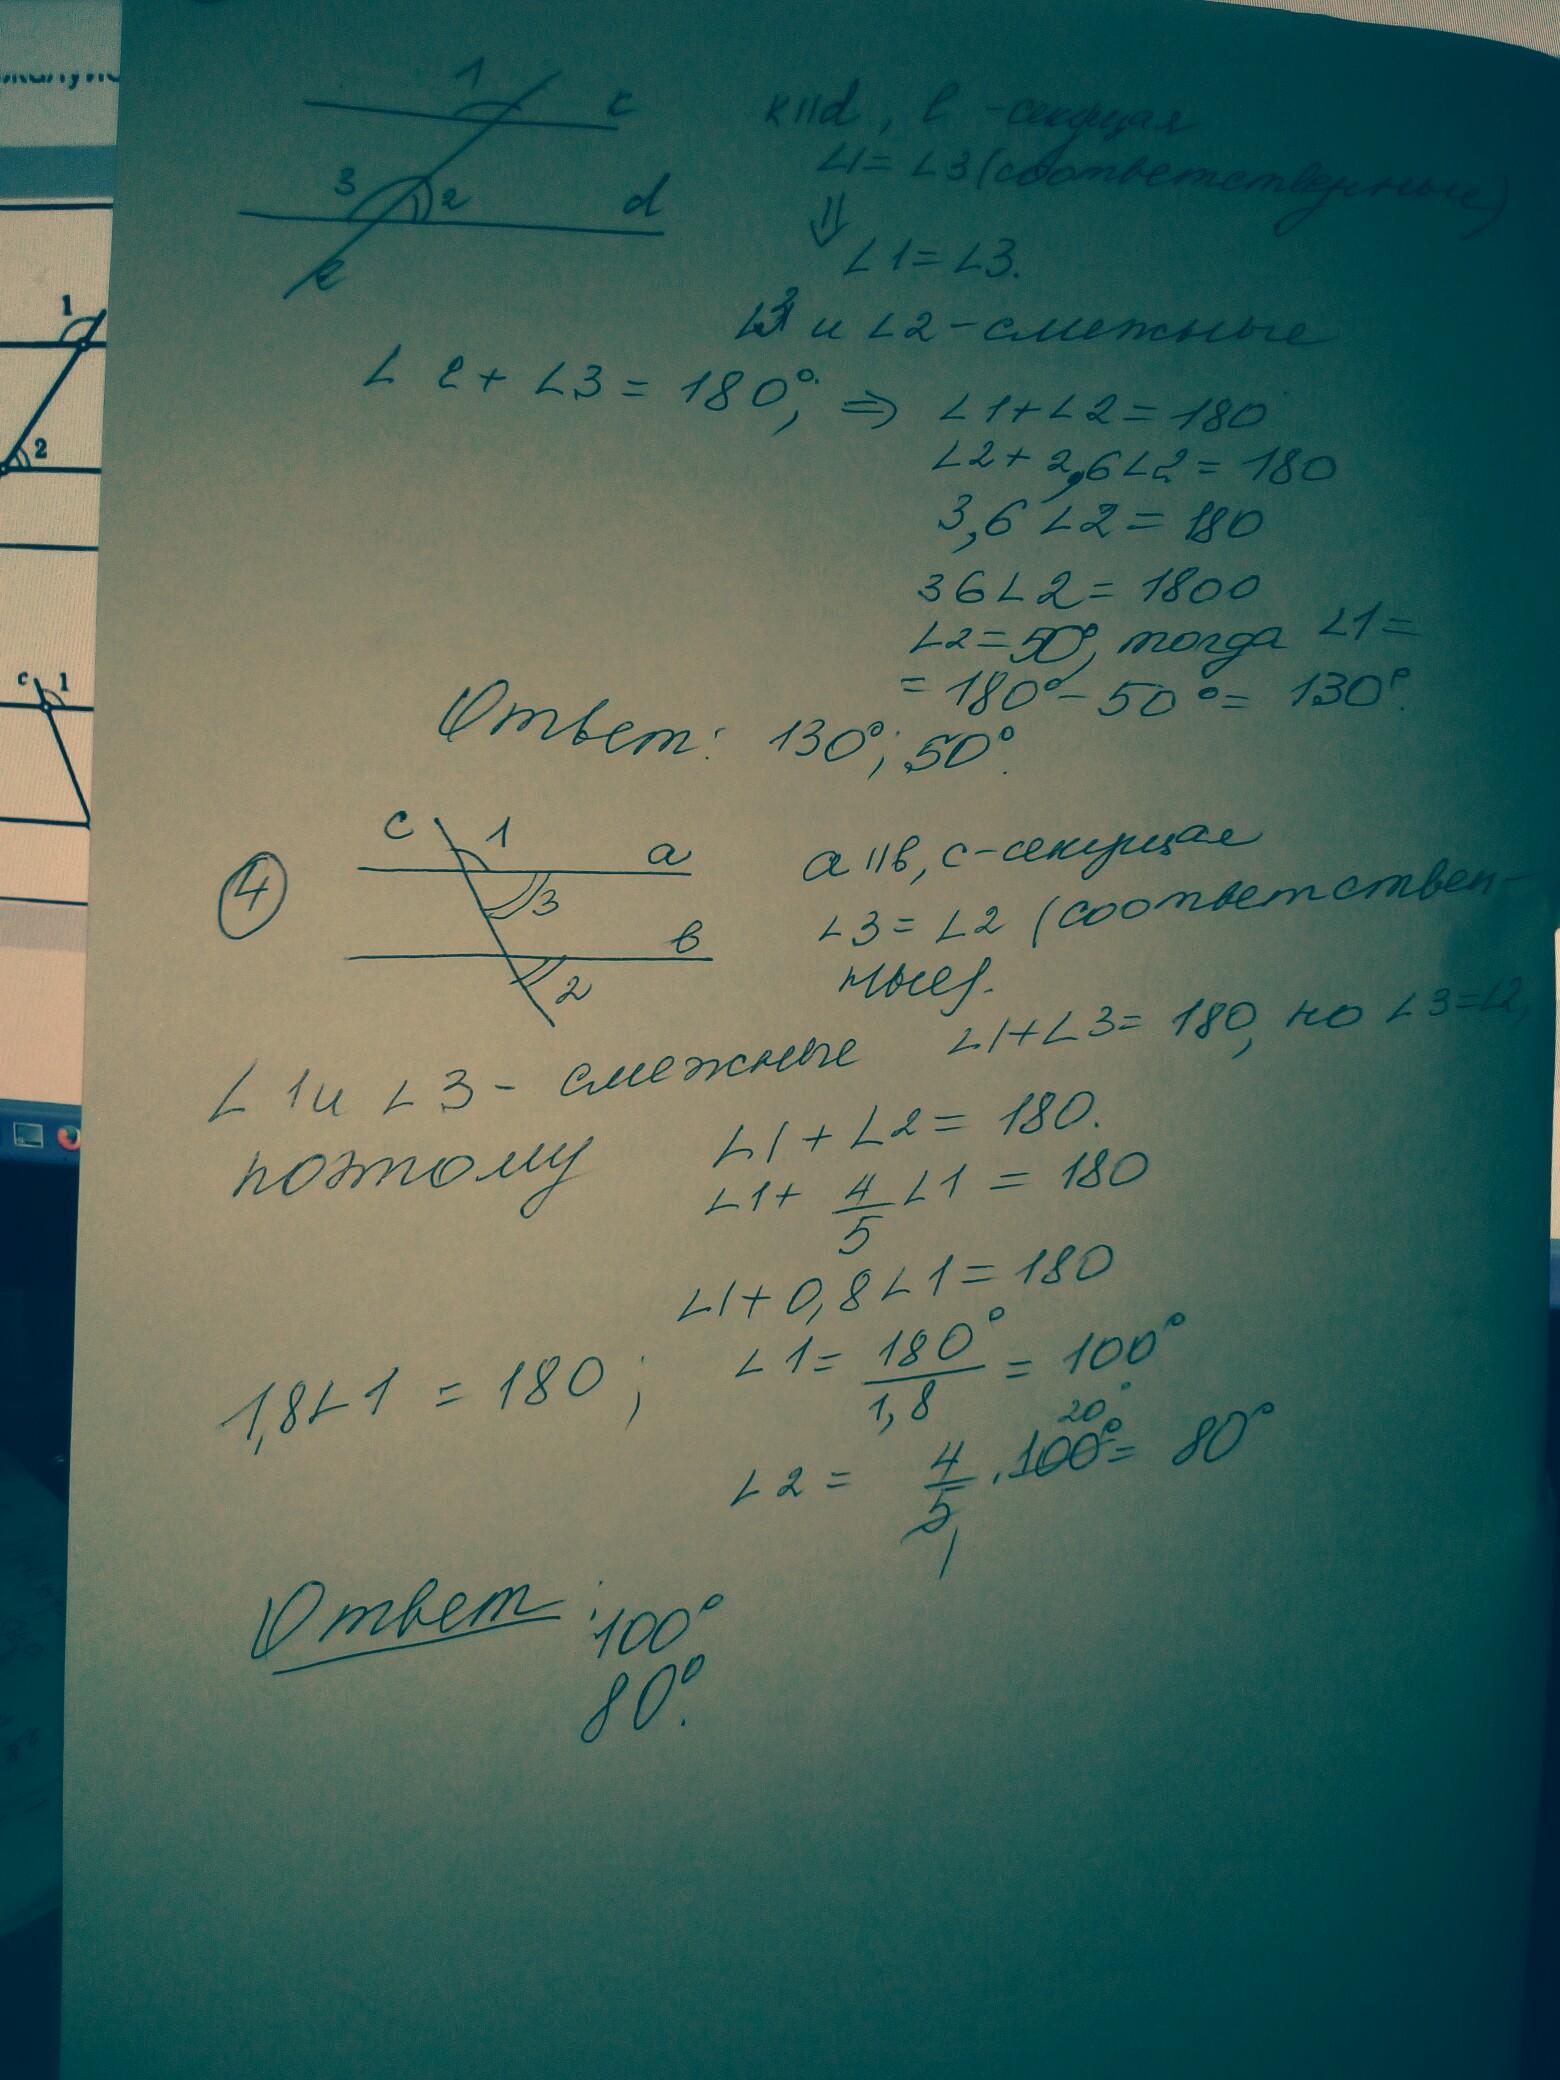 1
к
3
2
d
к||d, l - секущая
∠1 = ∠3 (соответственные)
⇓
∠1 = ∠3.
∠3 и ∠2 - смежные
∠2 + ∠3 = 180°; ⇒ ∠1 + ∠2 = 180
∠2 + 2,6∠2 = 180
3,6∠2 = 180
36∠2 = 1800
∠2 = 50°, тогда ∠1 =
= 180° - 50° = 130°.
Ответ: 130°; 50°.
4
c
1
a
3
в
2
a||в, c - секущая
∠3 = ∠2 (соответствен-
ные).
∠1 и ∠3 - смежные ∠1 + ∠3 = 180, но ∠3 = ∠2,
поэтому ∠1 + ∠2 = 180.
∠1 + 4/5 ∠1 = 180
∠1 + 0,8∠1 = 180
1,8∠1 = 180; ∠1 = 180°/1,8 = 100°
20°
∠2 = 4/5 · 100° = 80°
1
Ответ: 100°
80°.
1
2
c 1